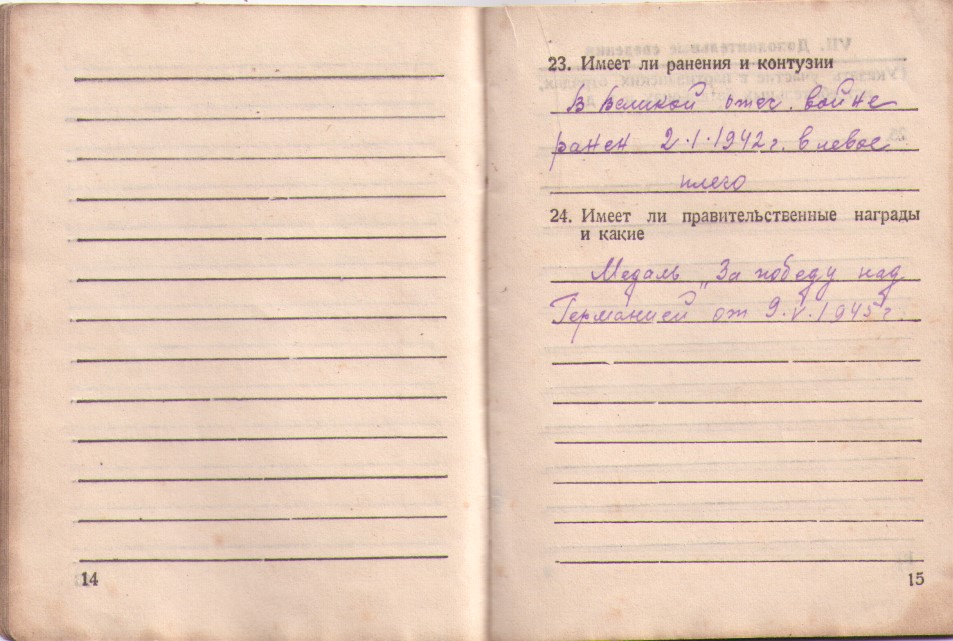 14
23. Имеет ли ранения и контузии
В Великой отеч. войне
ранен 2.I.1942 г. в левое
плечо
24. Имеет ли правительственные награды
и какие
Медаль „За победу над
Германией от 9.V.1945 г.
15